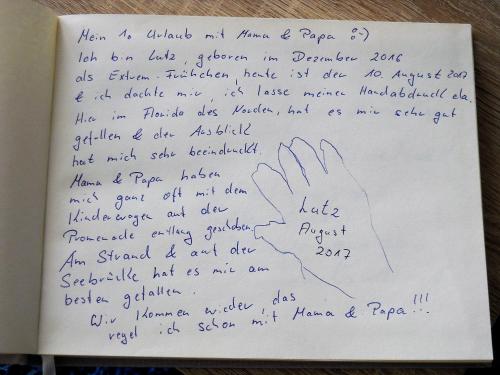 Mein 1. Urlaub mit Mama & Papa :-)
Ich bin Lutz, geboren im Dezember 2016
als Extrem-Frühchen, heute ist der 10. August 2017
& ich dachte mir, ich lasse meinen Handabdruck da.
Hier im Florida des Nordens, hat es mir sehr gut
gefallen & der Ausblick
hat mich sehr beeindruckt.
Mama & Papa haben
mich ganz oft mit dem
Kinderwagen auf der
Promenade entlang geschoben.
Am Strand & auf der
Seebrücke hat es mir am
besten gefallen.
Wir kommen wieder, das
regel ich schon mit Mama & Papa!!!
Lutz
August
2017